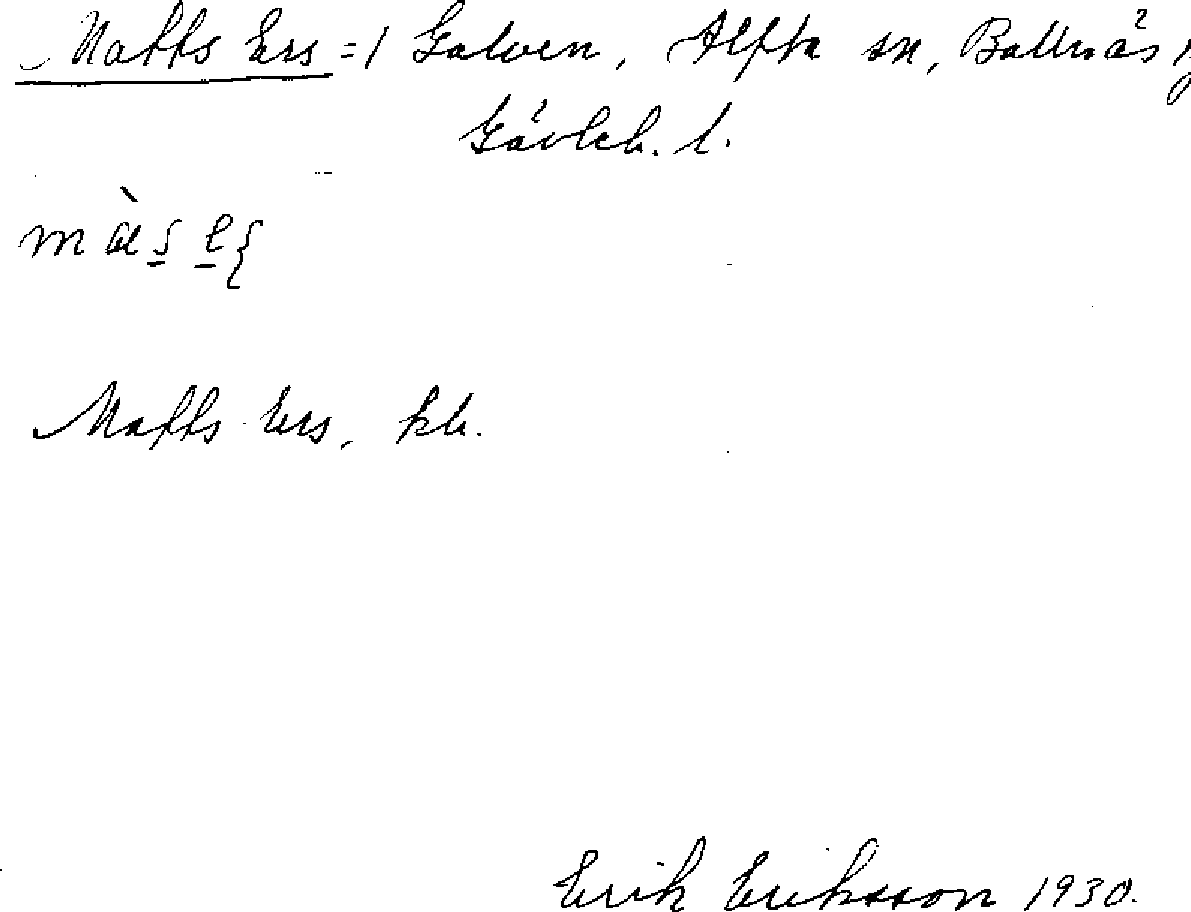 Matts Ers = 1 Galven, Alfta sn, Bollnäs
Gävleb. l.
Matts Ers, kb.
Erik Eriksson 1930.